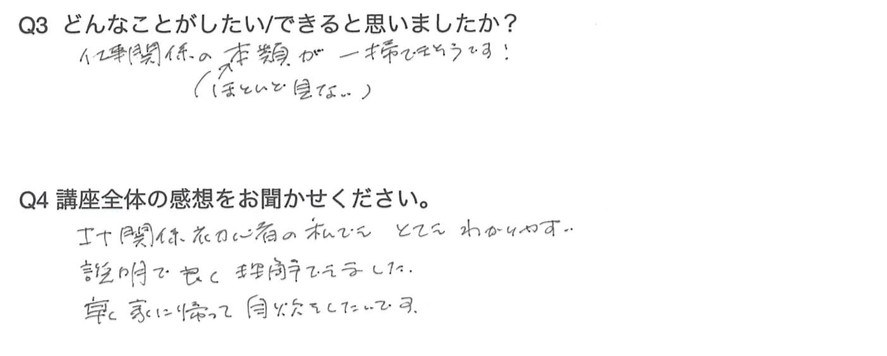 Q3 どんなことがしたい/できると思いましたか？
仕事関係の本類が一掃できそうです！
(ほとんど見ない)
Q4 講座全体の感想をお聞かせください。
IT関係初心者の私でも とても わかりやすい
説明で良く理解できました。
早く家に帰って自炊をしたいです。